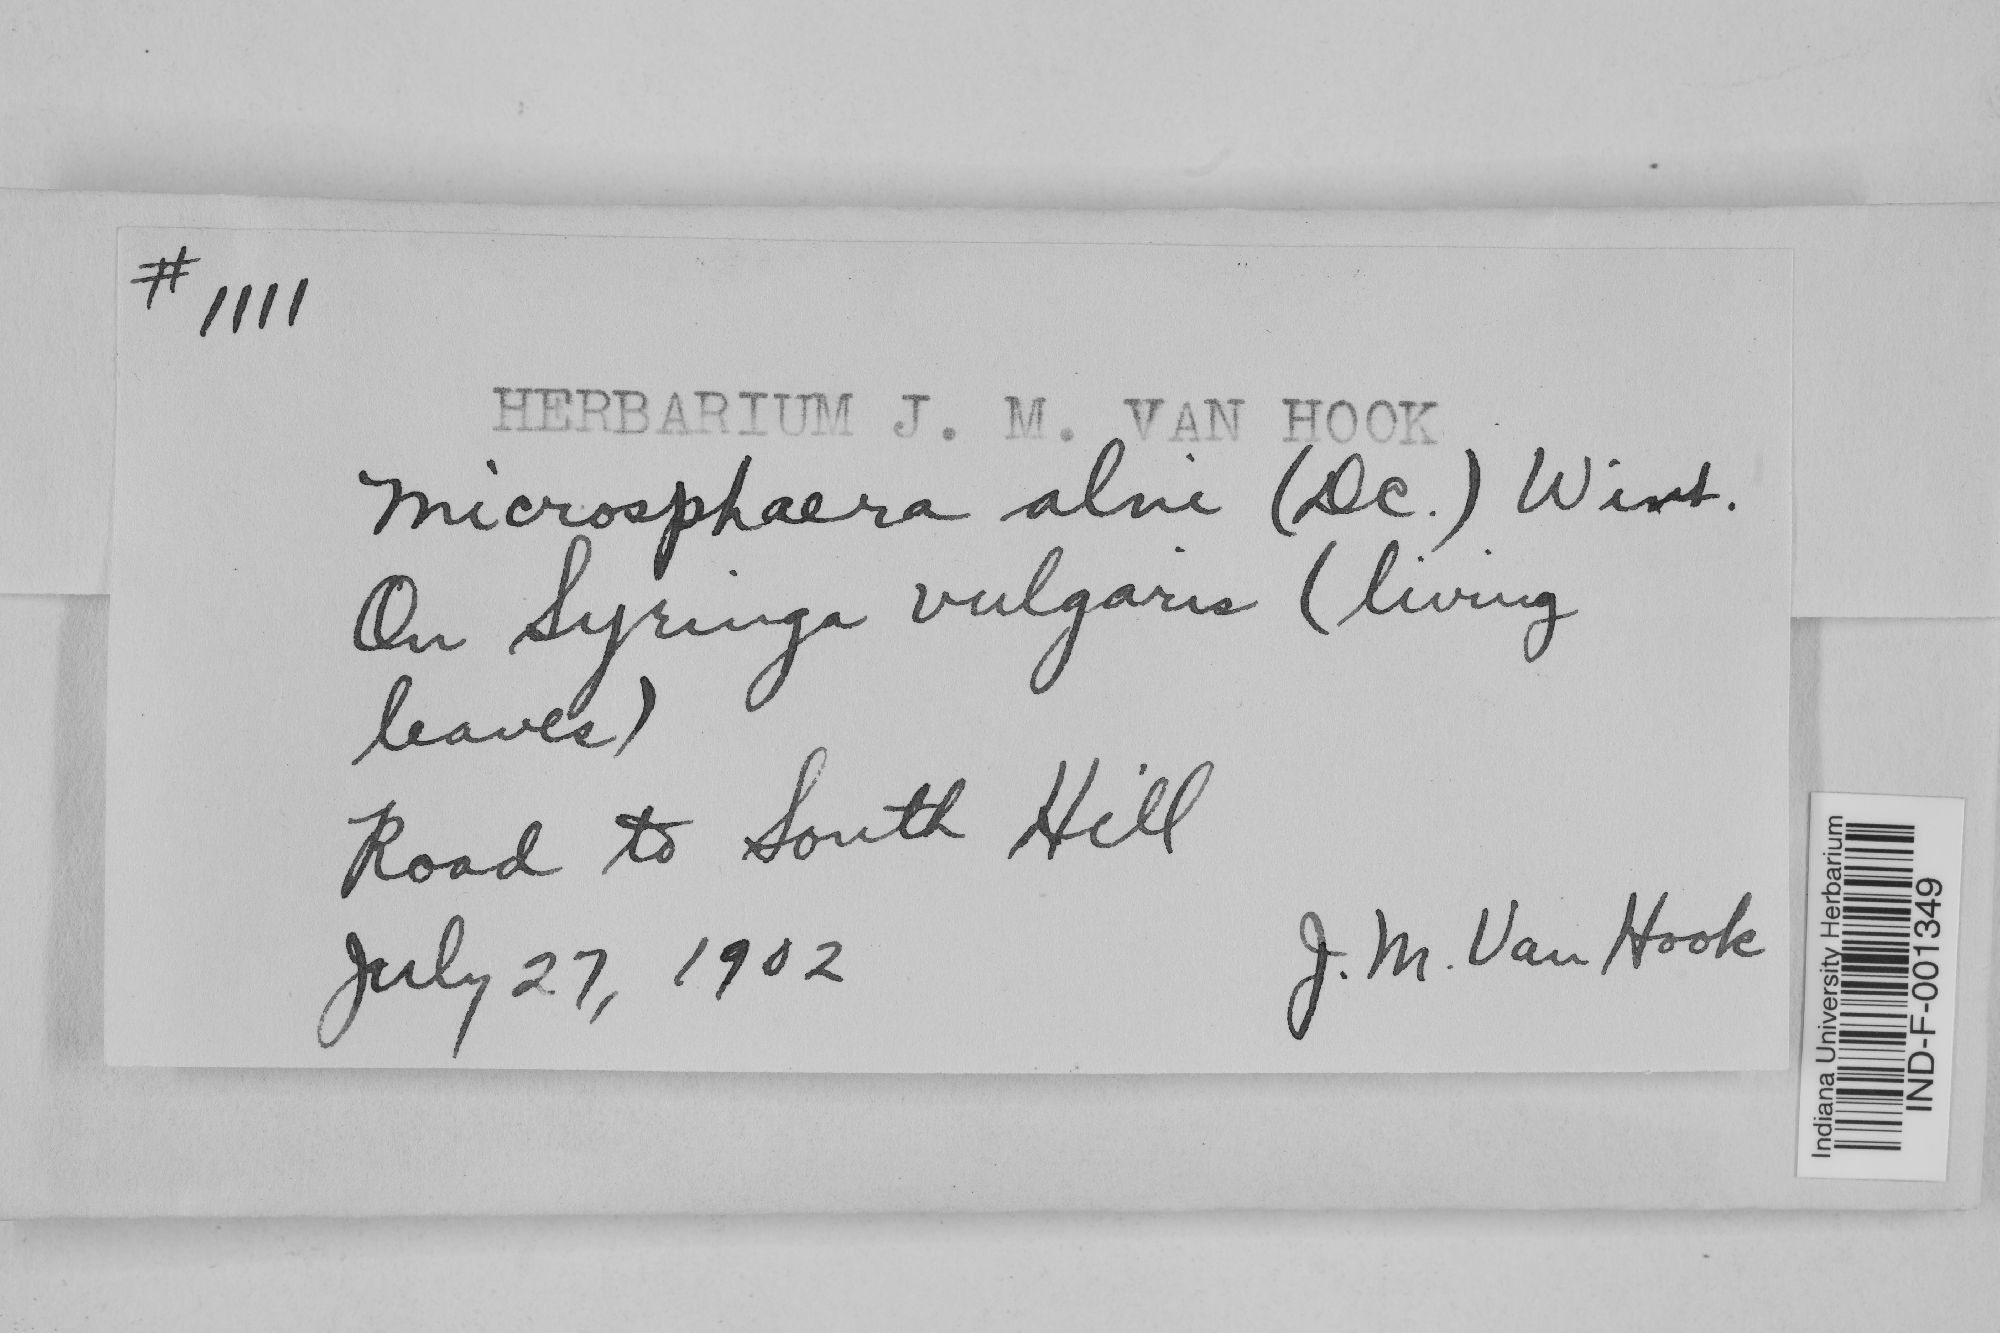 # 1111
HERBARIUM J. M. VAN HOOK
Microsphaera alni (DC.) Wint.
On Syringa vulgaris (living
leaves)
Road to South Hill
July 27, 1902
J. M. Van Hook
Indiana University Herbarium
IND-F-001349